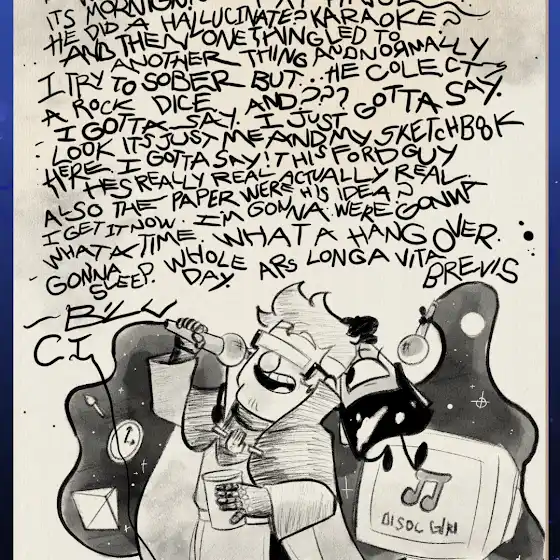 ITS MORNIGN!
HE DID A HALLUCINATE? KARAOKE?
AND THEN ONE THING LED TO
ANOTHER THING AND NORMALLY
I TRY TO SOBER BUT... HE COLECTS
A ROCK DICE AND???
I GOTTA SAY. I JUST GOTTA SAY.
LOOK ITS JUST ME AND MY SKETCHBOOK
HERE I GOTTA SAY! THIS FORD GUY
HES REALLY REAL ACTUALLY REAL.
ALSO THE PAPER WERE HIS IDEA?
I GET IT NOW. I'M GONNA WERE
WHAT A TIME. WHAT A HANG OVER.
GONNA SLEEP. WHOLE DAY ARS LONGA VITA BREVIS
C.I.